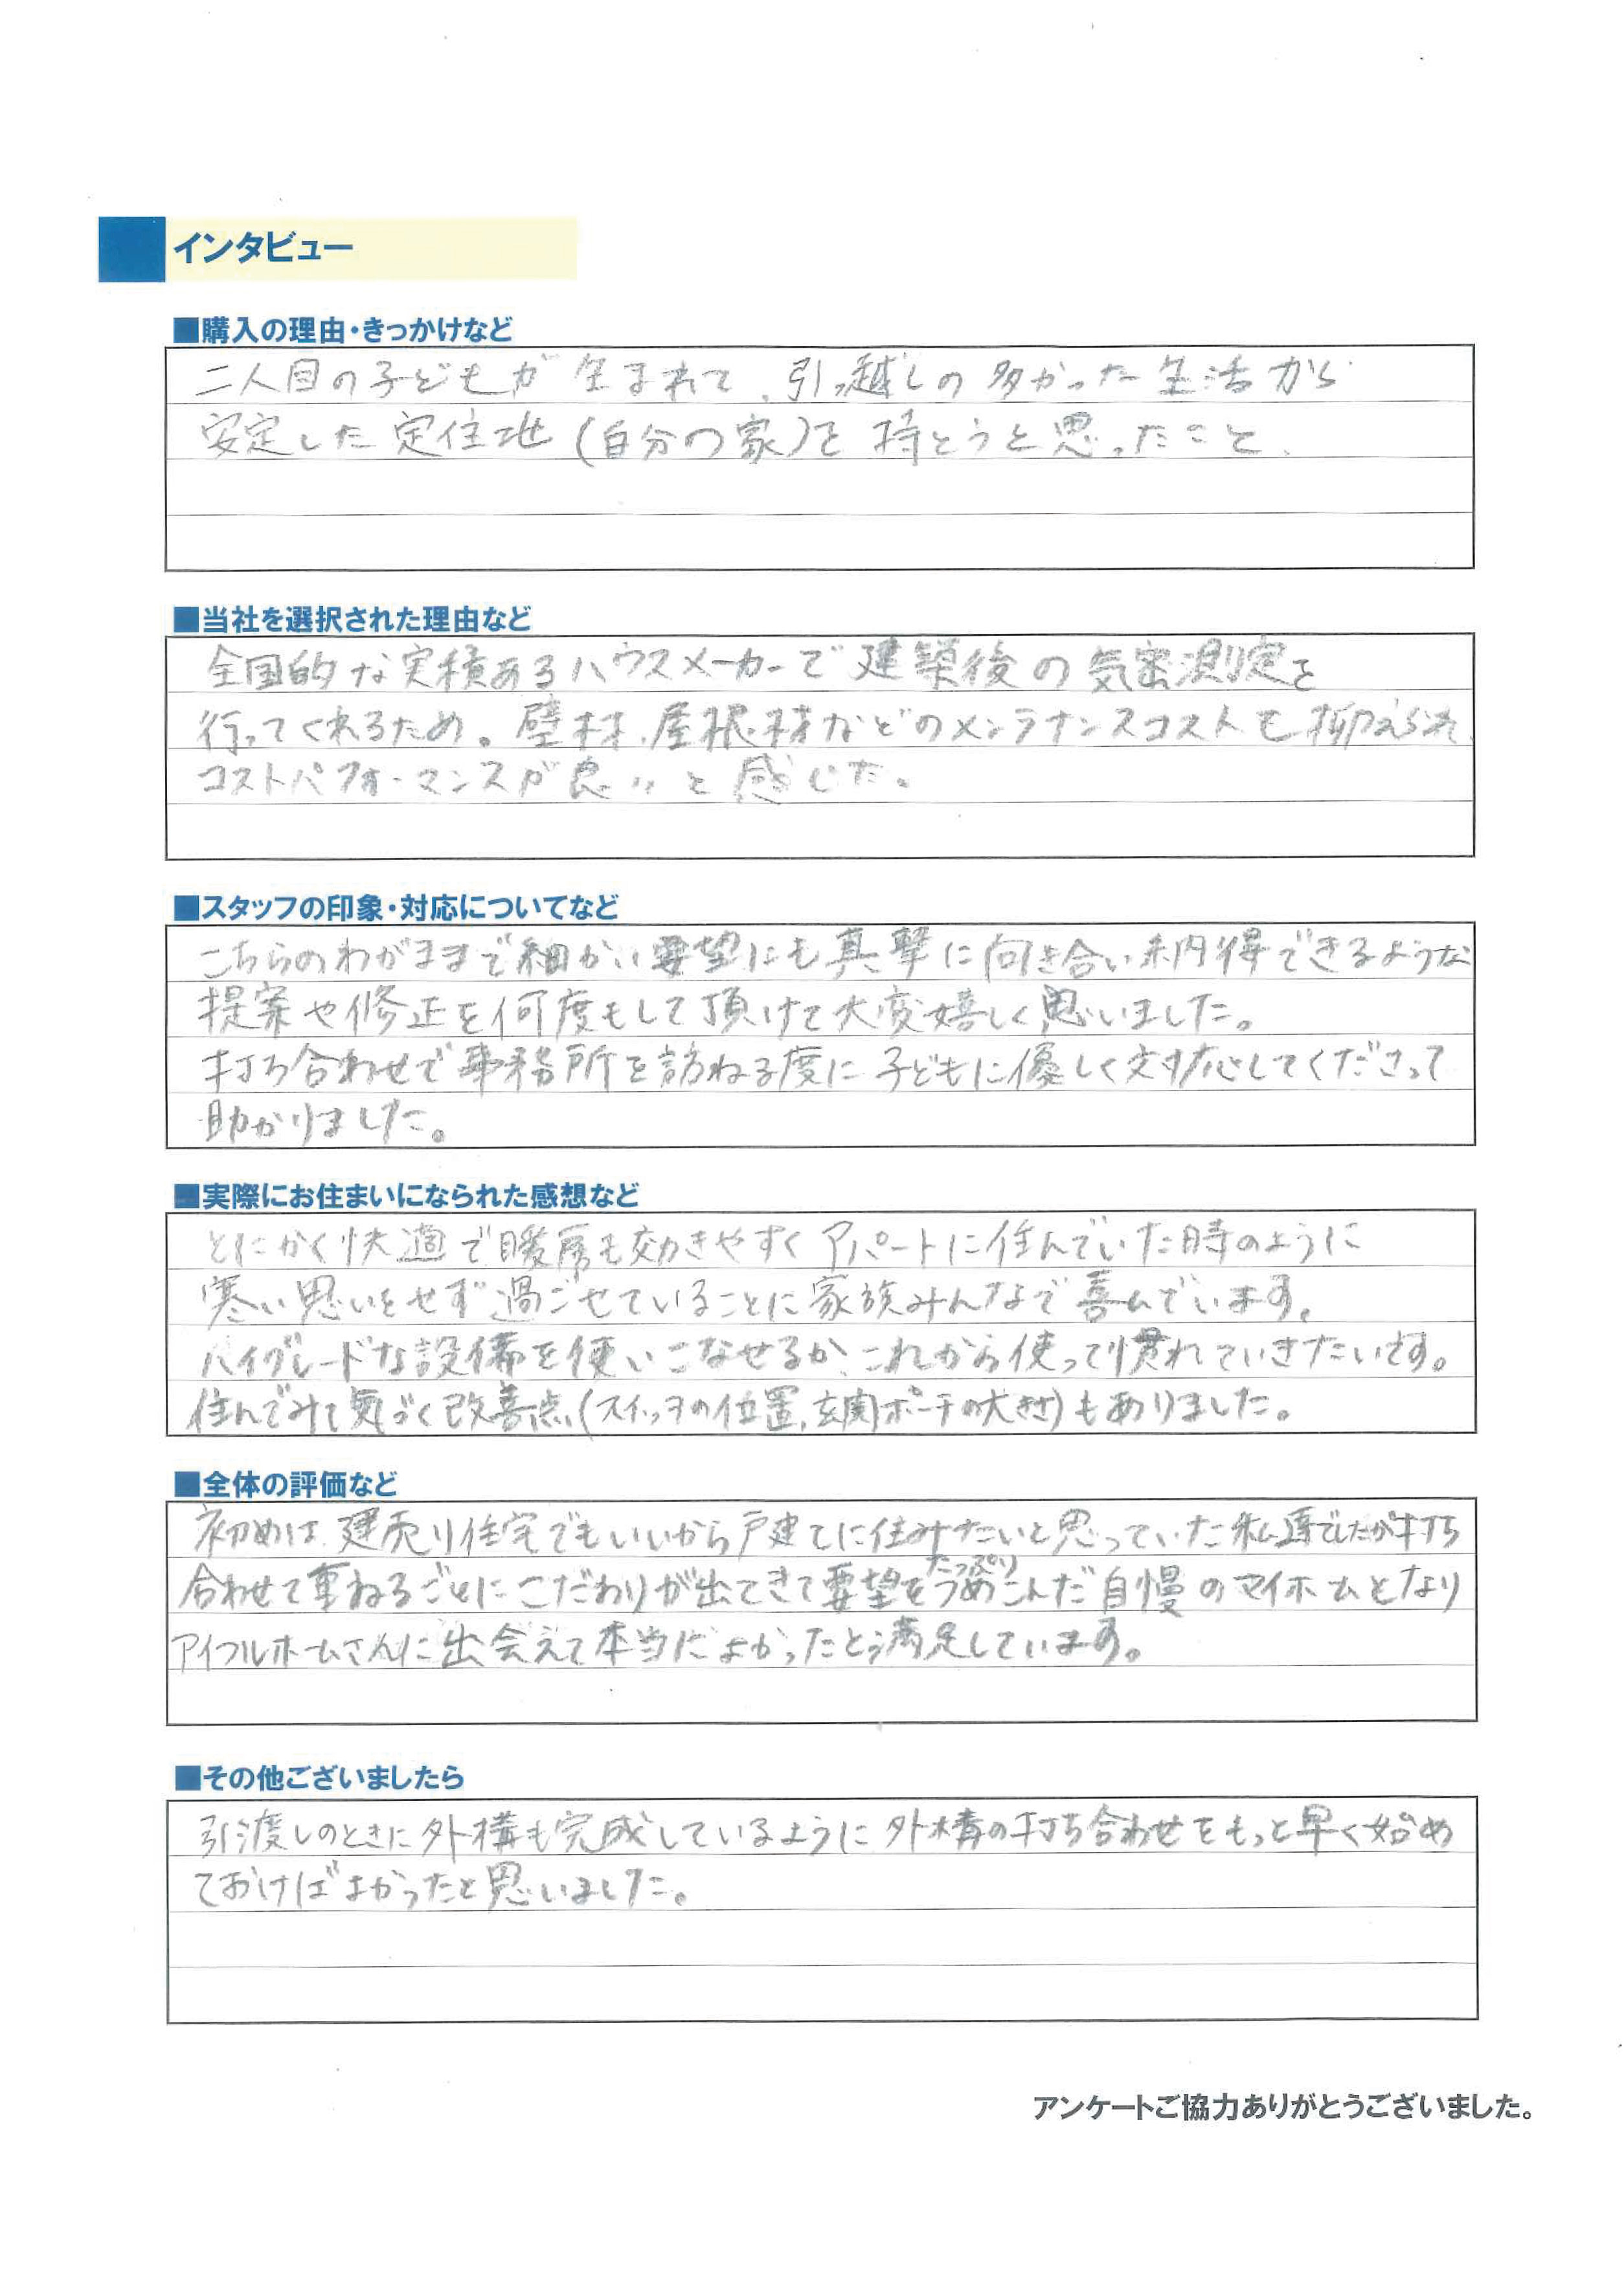 インタビュー
■購入の理由・きっかけなど
二人目の子どもが生まれて、引っ越しの多かった生活から
安定した定住地(自分の家)を持とうと思ったこと、
■当社を選択された理由など
全国的な実積あるハウスメーカーで建築後の気密測定を
行ってくれるため。壁材、屋根材などのメンテナンスコストも抑えられ
コストパフォーマンスが良いと感じた。
■スタッフの印象・対応についてなど
こちらのわがままで細かい要望にも真摯に向き合い納得できるような
提案や修正を何度もして頂けて大変嬉しく思いました。
打ち合わせで事務所を訪ねる度に子どもに優しく対応してくださって
助かりました。
■実際にお住まいになられた感想など
とにかく快適で暖房も効きやすくアパートに住んでいた時のように
寒い思いをせず過ごせていることに家族みんなで喜んでいます。
ハイグレードな設備を使いこなせるか、これから使って慣れていきたいです。
住んでみて気づく改善点(スイッチの位置、玄関ポーチの大きさ)もありました。
■全体の評価など
初めは建売り住宅でもいいから戸建てに住みたいと思っていた私達でしたが打ち
合わせて重ねるごとにこだわりが出てきて要望をたっぷりつめこんだ自慢のマイホームとなり
アイフルホームさんに出会えて本当によかったと満足しています。
■その他ございましたら
引渡しのときに外構も完成しているように外構の打ち合わせをもっと早く始め
ておけばよかったと思いました。
アンケートご協力ありがとうございました。